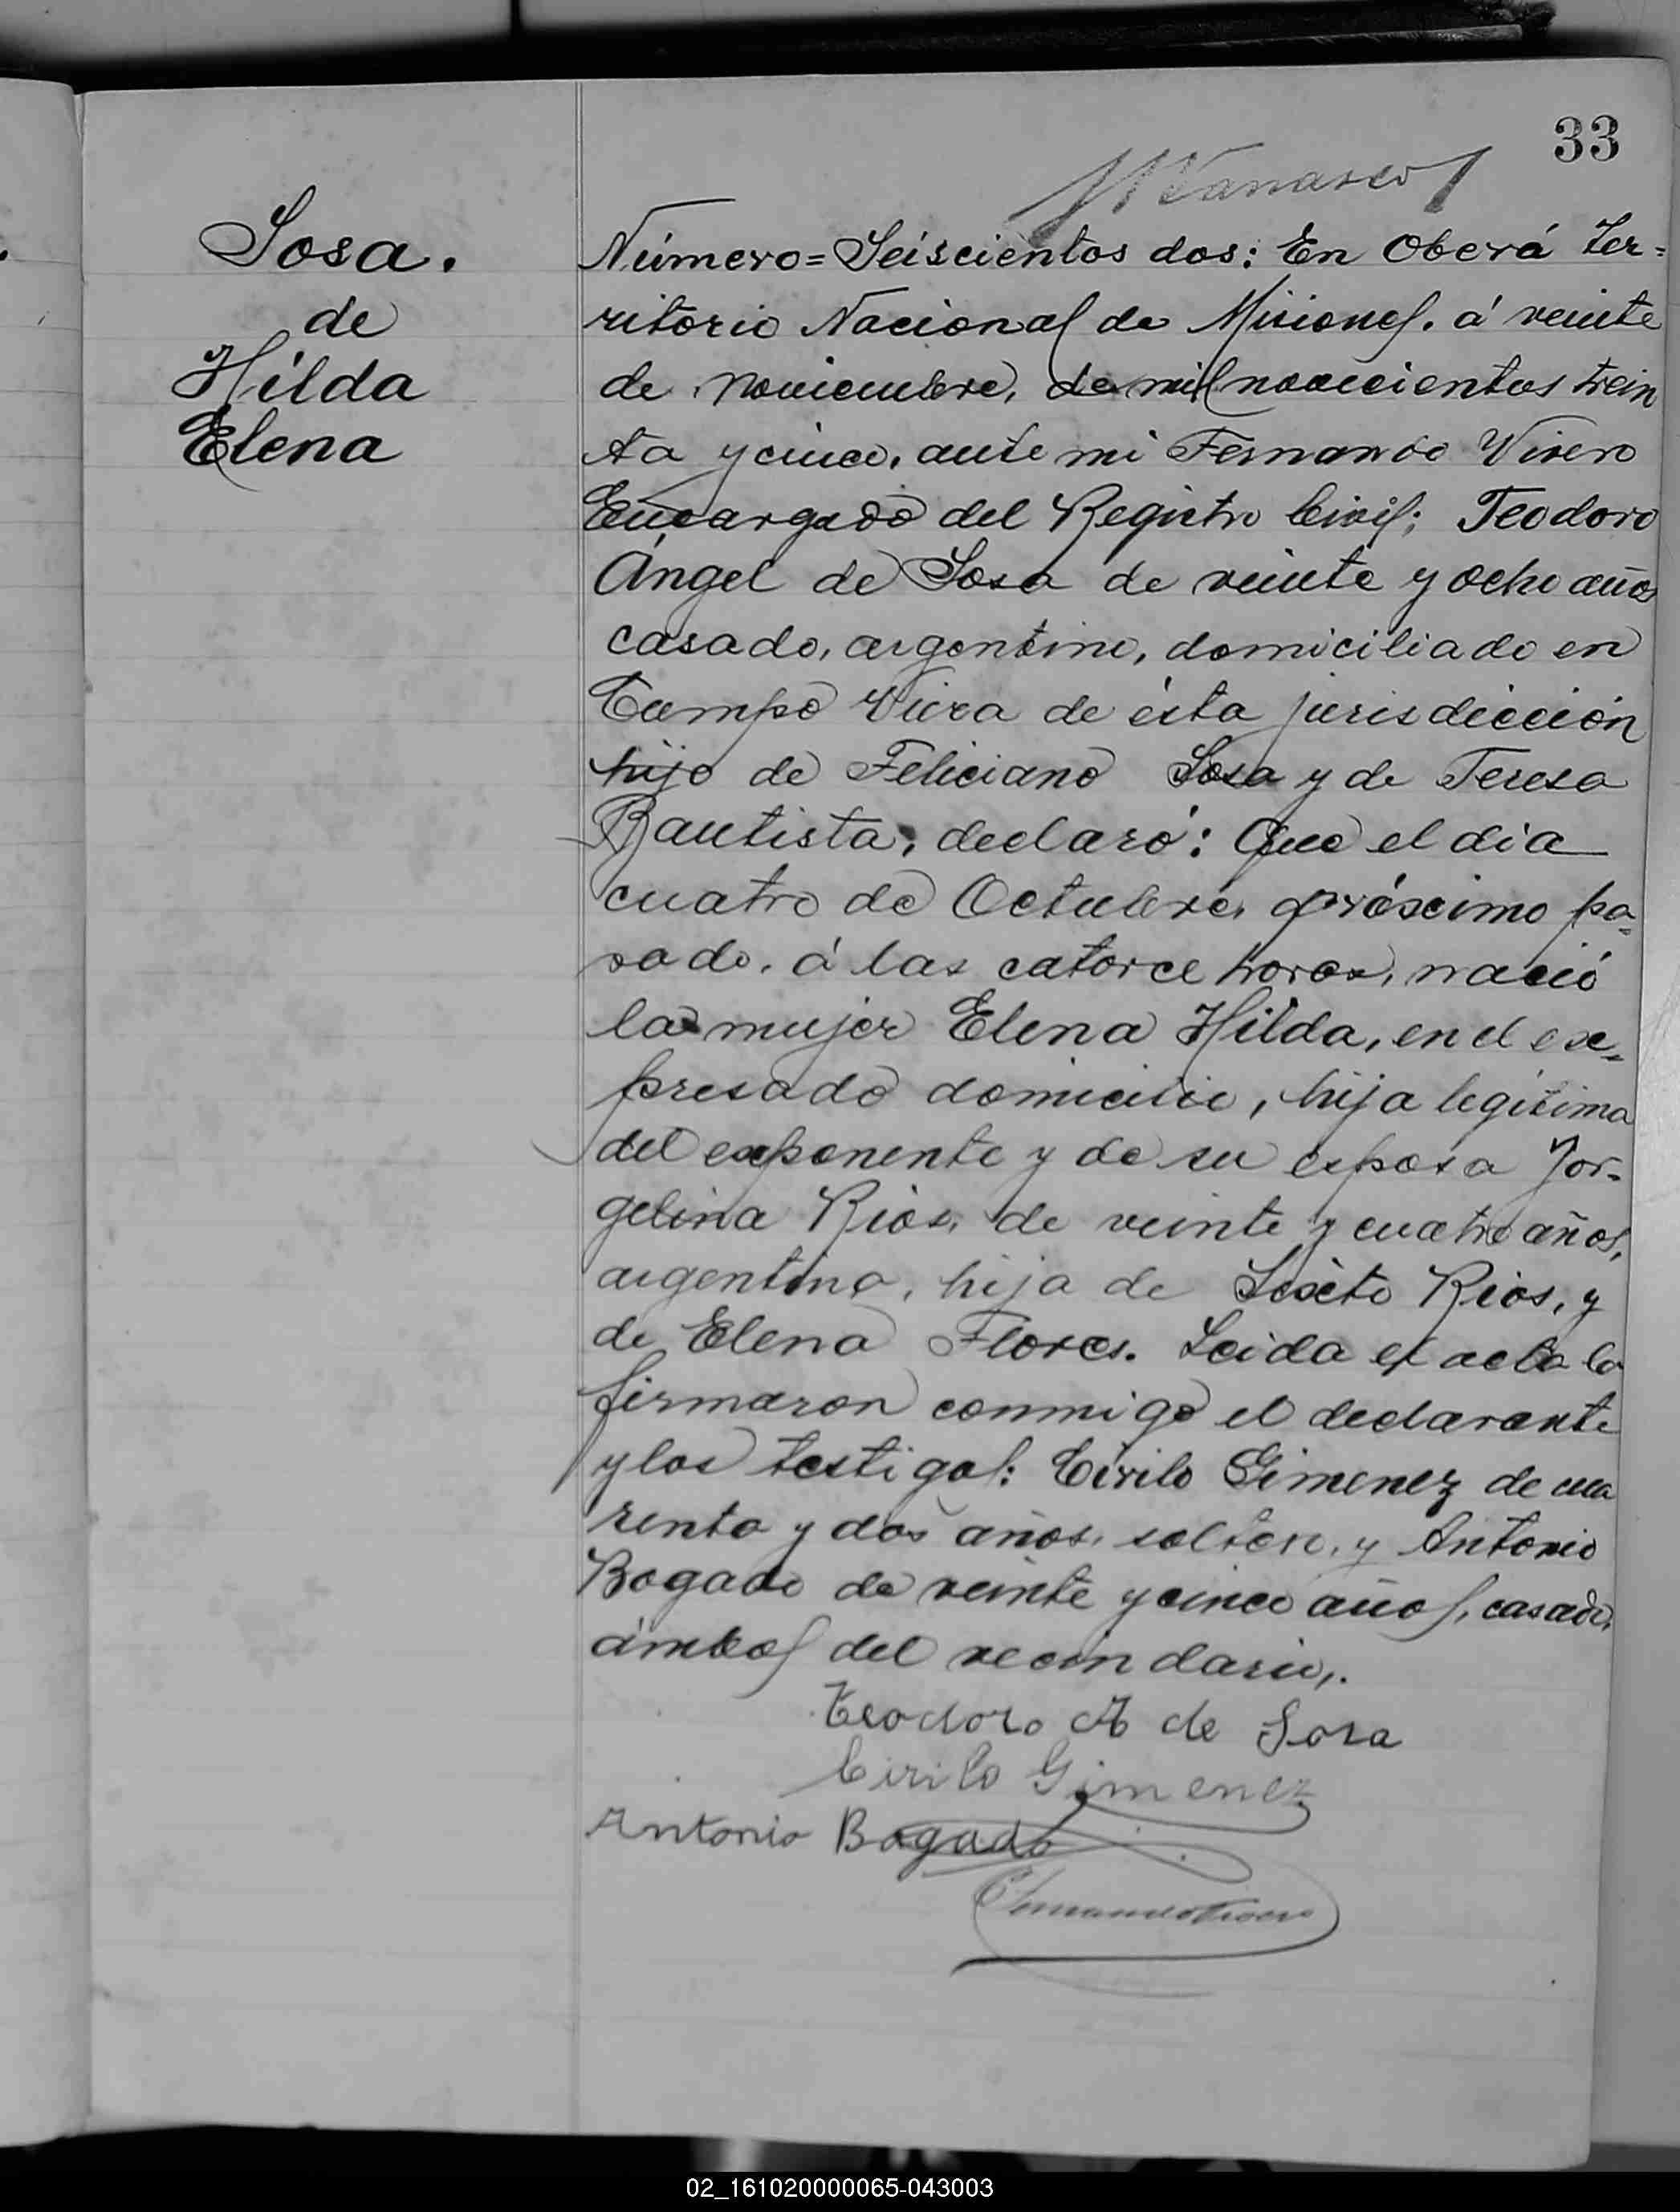 33
Sosa.
de
Hilda
Elena
Número = Seiscientos dos: En Oberá Ter=
ritorio Nacional de Misiones. á veinte
de noviembre, de mil novecientos trein
ta y cinco, ante mi Fernando Vivero
Encargado del Registro Civil; Teodoro
Ángel de Sosa de veinte y ocho años
casado, argentino, domiciliado en
Campo Viera de ésta jurisdicción
hijo de Feliciano Sosa y de Teresa
Bautista, declaró: Que el dia
cuatro de Octubre, próximo pa=
sado, á las catorce horas, nació
la mujer Elena Hilda, en el ex=
presado domicilio, hija legitima
del exponente y de su esposa Jor-
gelina Rios, de veinte y cuatro años,
argentina, hija de Sixto Rios, y
de Elena Flores. Leida el acta la
firmaron conmigo el declarante
y los testigos: Cirilo Gimenez de cua
renta y dos años, soltero, y Antonio
Bogado de veinte y cinco años, casado,
ámbos del vecindario,.
Teodoro A de Sosa
Cirilo Gimenez
Antonio Bogado
Fernando Vivero
02_161020000065-043003